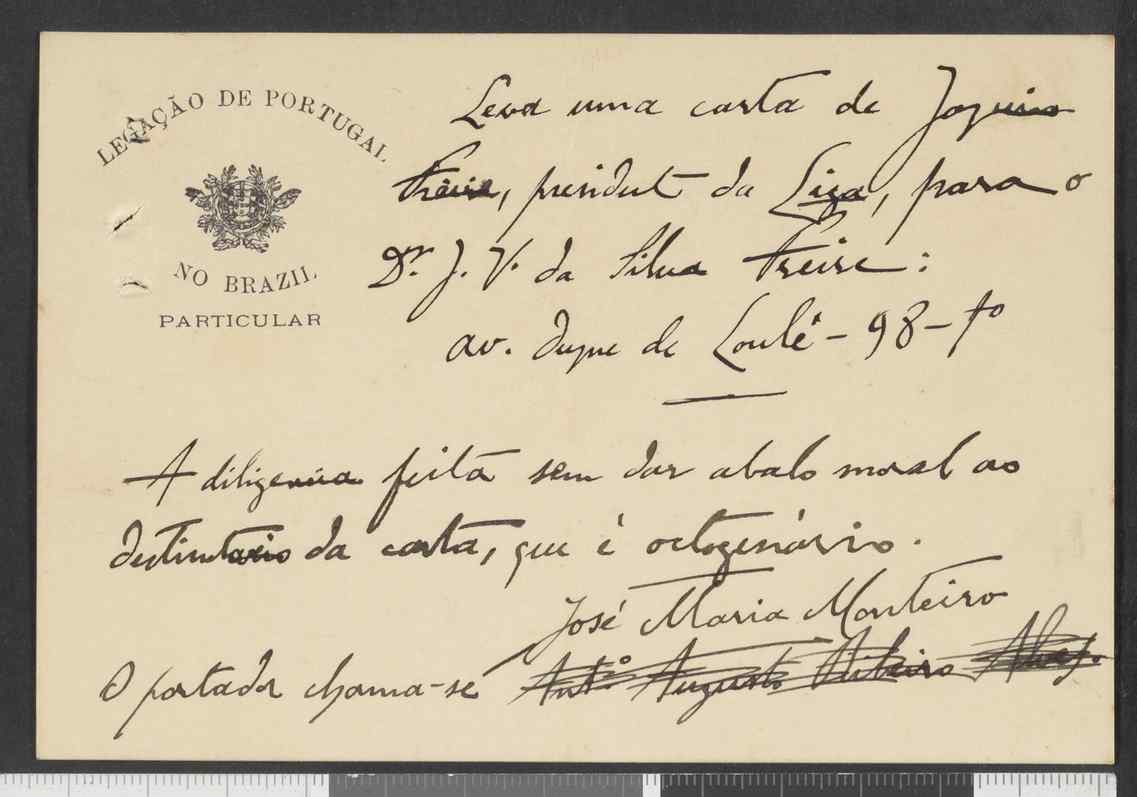 LEGAÇÃO DE PORTUGAL
NO BRAZIL
PARTICULAR
Leva uma carta de Joaquim
Freire, president da Liga, para o
Dr. J. V. da Silva Freire:
av. Duque de Loulé - 98 -
A diligencia feita sem dar abalo moral ao
destinatario da carta, que é octogenário.
José Maria Monteiro
O portador chama-se Antº Augusto Ribeiro Alves.